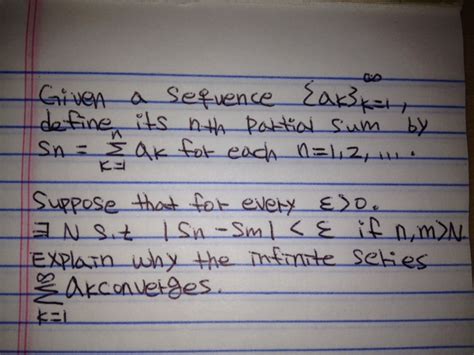 Given a sequence {ak}∞k=1,
define its nth partial sum by
Sn = n∑k=1 ak for each n=1,2, ....
Suppose that for every ε>0.
∃ N s.t |Sn - Sm| < ε if n,m>N
Explain why the infinite series
∞∑k=1 akconverges.